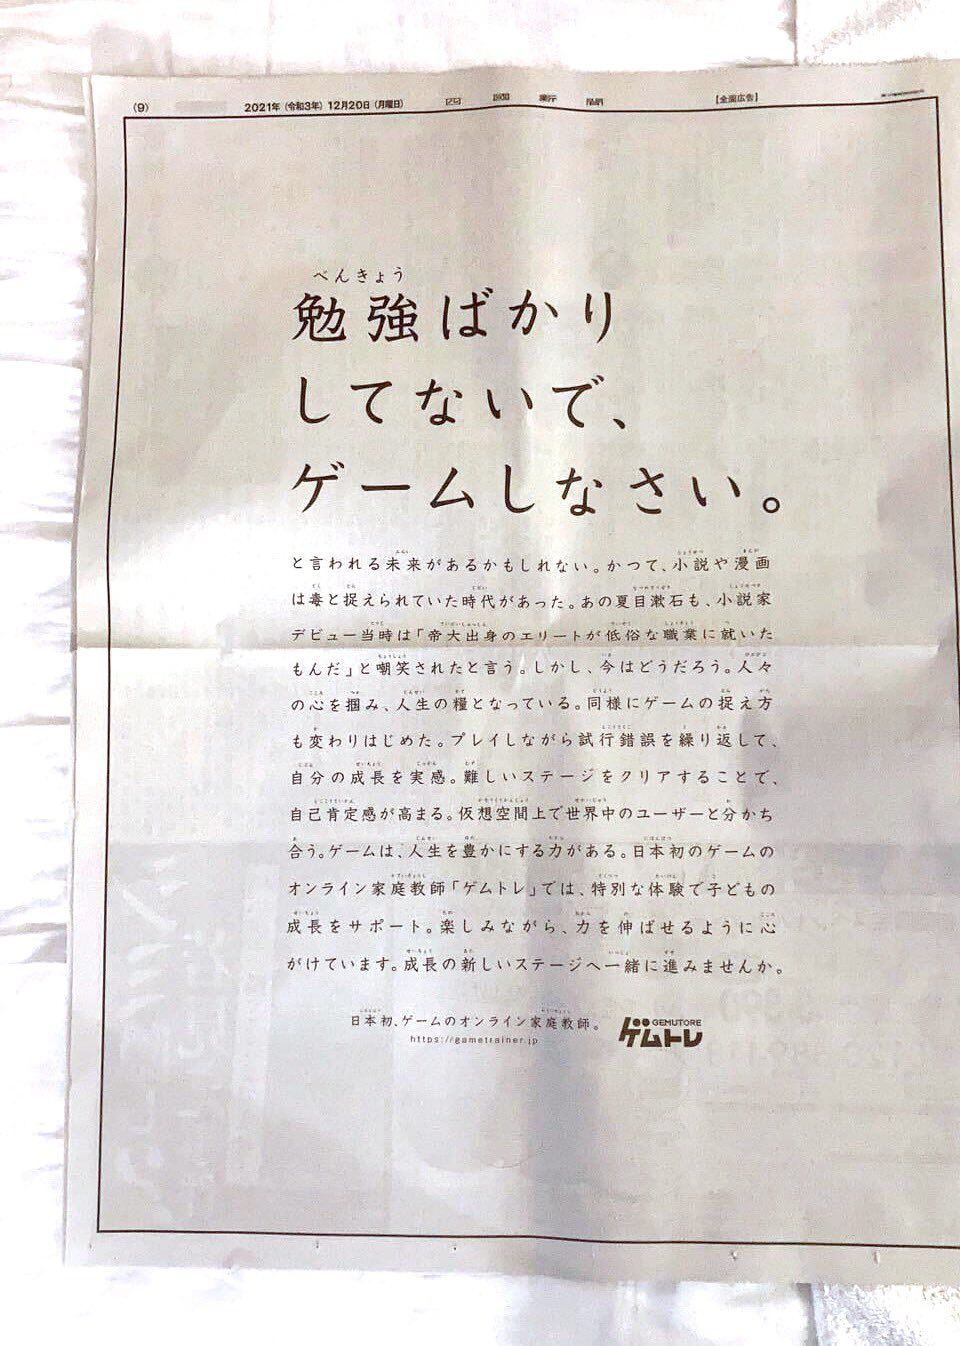 (9)
2021年(令和3年)12月20日(月曜日)
四 國 新 聞
【全面広告】
べんきょう
勉強ばかり
してないで、
ゲームしなさい。
と言われる未来があるかもしれない。かつて、小説や漫画
は毒と捉えられていた時代があった。あの夏目漱石も、小説家
デビュー当時は「帝大出身のエリートが低俗な職業に就いた
もんだ」と嘲笑されたと言う。しかし、今はどうだろう。人々
の心を掴み、人生の糧となっている。同様にゲームの捉え方
も変わりはじめた。プレイしながら試行錯誤を繰り返して、
自分の成長を実感。難しいステージをクリアすることで、
自己肯定感が高まる。仮想空間上で世界中のユーザーと分かち
合う。ゲームは、人生を豊かにする力がある。日本初のゲームの
オンライン家庭教師「ゲムトレ」では、特別な体験で子どもの
成長をサポート。楽しみながら、力を伸ばせるように心
がけています。成長の新しいステージへ一緒に進みませんか。
日本初、ゲームのオンライン家庭教師。
https://gametrainer.jp
GEMUTORE
ゲムトレ